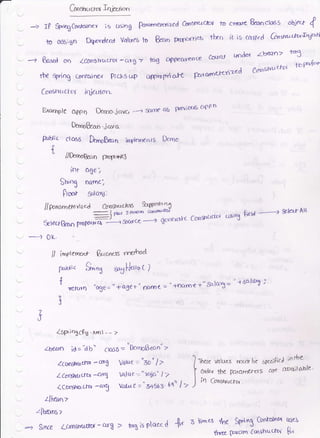 Constructor Injection
→ If Spring Container is using Parameterized Constructor to create Bean class object &
to assign Dependent values to Bean properties then it is called Constructor Injection
→ Based on <constructor-arg> tag appearence count under <bean> tag
the Spring container picks up appropriate Parameterized Constructor to perform
Constructor injection.
Example appn Demo.java → same as previous appn
DemoBean.java
public class DemoBean implements Demo
{
//DemoBean properties
int age;
String name;
float salary;
//parameterized Constructors Supporting
Select Bean properties → Source → generate Constructor using field → Select All
→ Ok.
// implement Business method
public String sayHello()
{
return "age="+age+" name="+name+" salary="+salary;
}
}
<springcfg.xml-->
<bean id="db" class="DemoBean">
<constructor-arg value="30"/>
<constructor-arg value="raja"/>
<constructor-arg value="54563.64"/>
These values must be specified in the
order the parameters are available
in Constructor
</bean>
</beans>
→ Since <constructor-arg> tag is placed for 3 times the Spring Container uses
three param constructor for